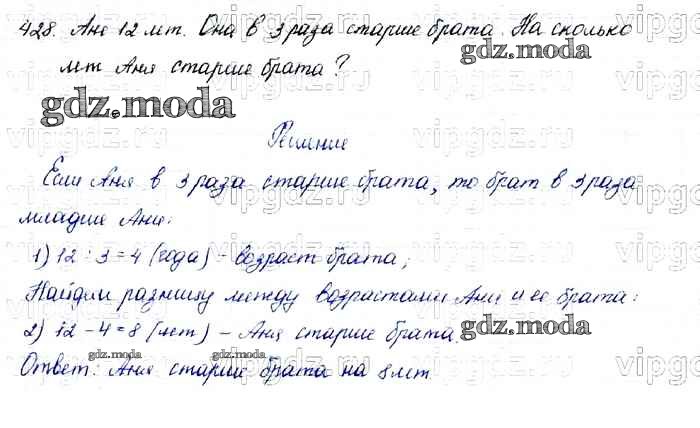 428. Ане 12 лет. Она в 3 раза старше брата. На сколько
лет Аня старше брата?
gdz.moda
gdz.moda
Решение
Если Аня в 3 раза старше брата, то брат в 3 раза
младше Ани:
1) 12 : 3 = 4 (года) - возраст брата;
Найдем разницу между возрастами Ани и ее брата:
2) 12 - 4 = 8 (лет) - Аня старше брата.
gdz.moda
gdz.moda
gdz.moda
Ответ: Аня старше брата на 8 лет.
gdz.moda
vipgdz.ru